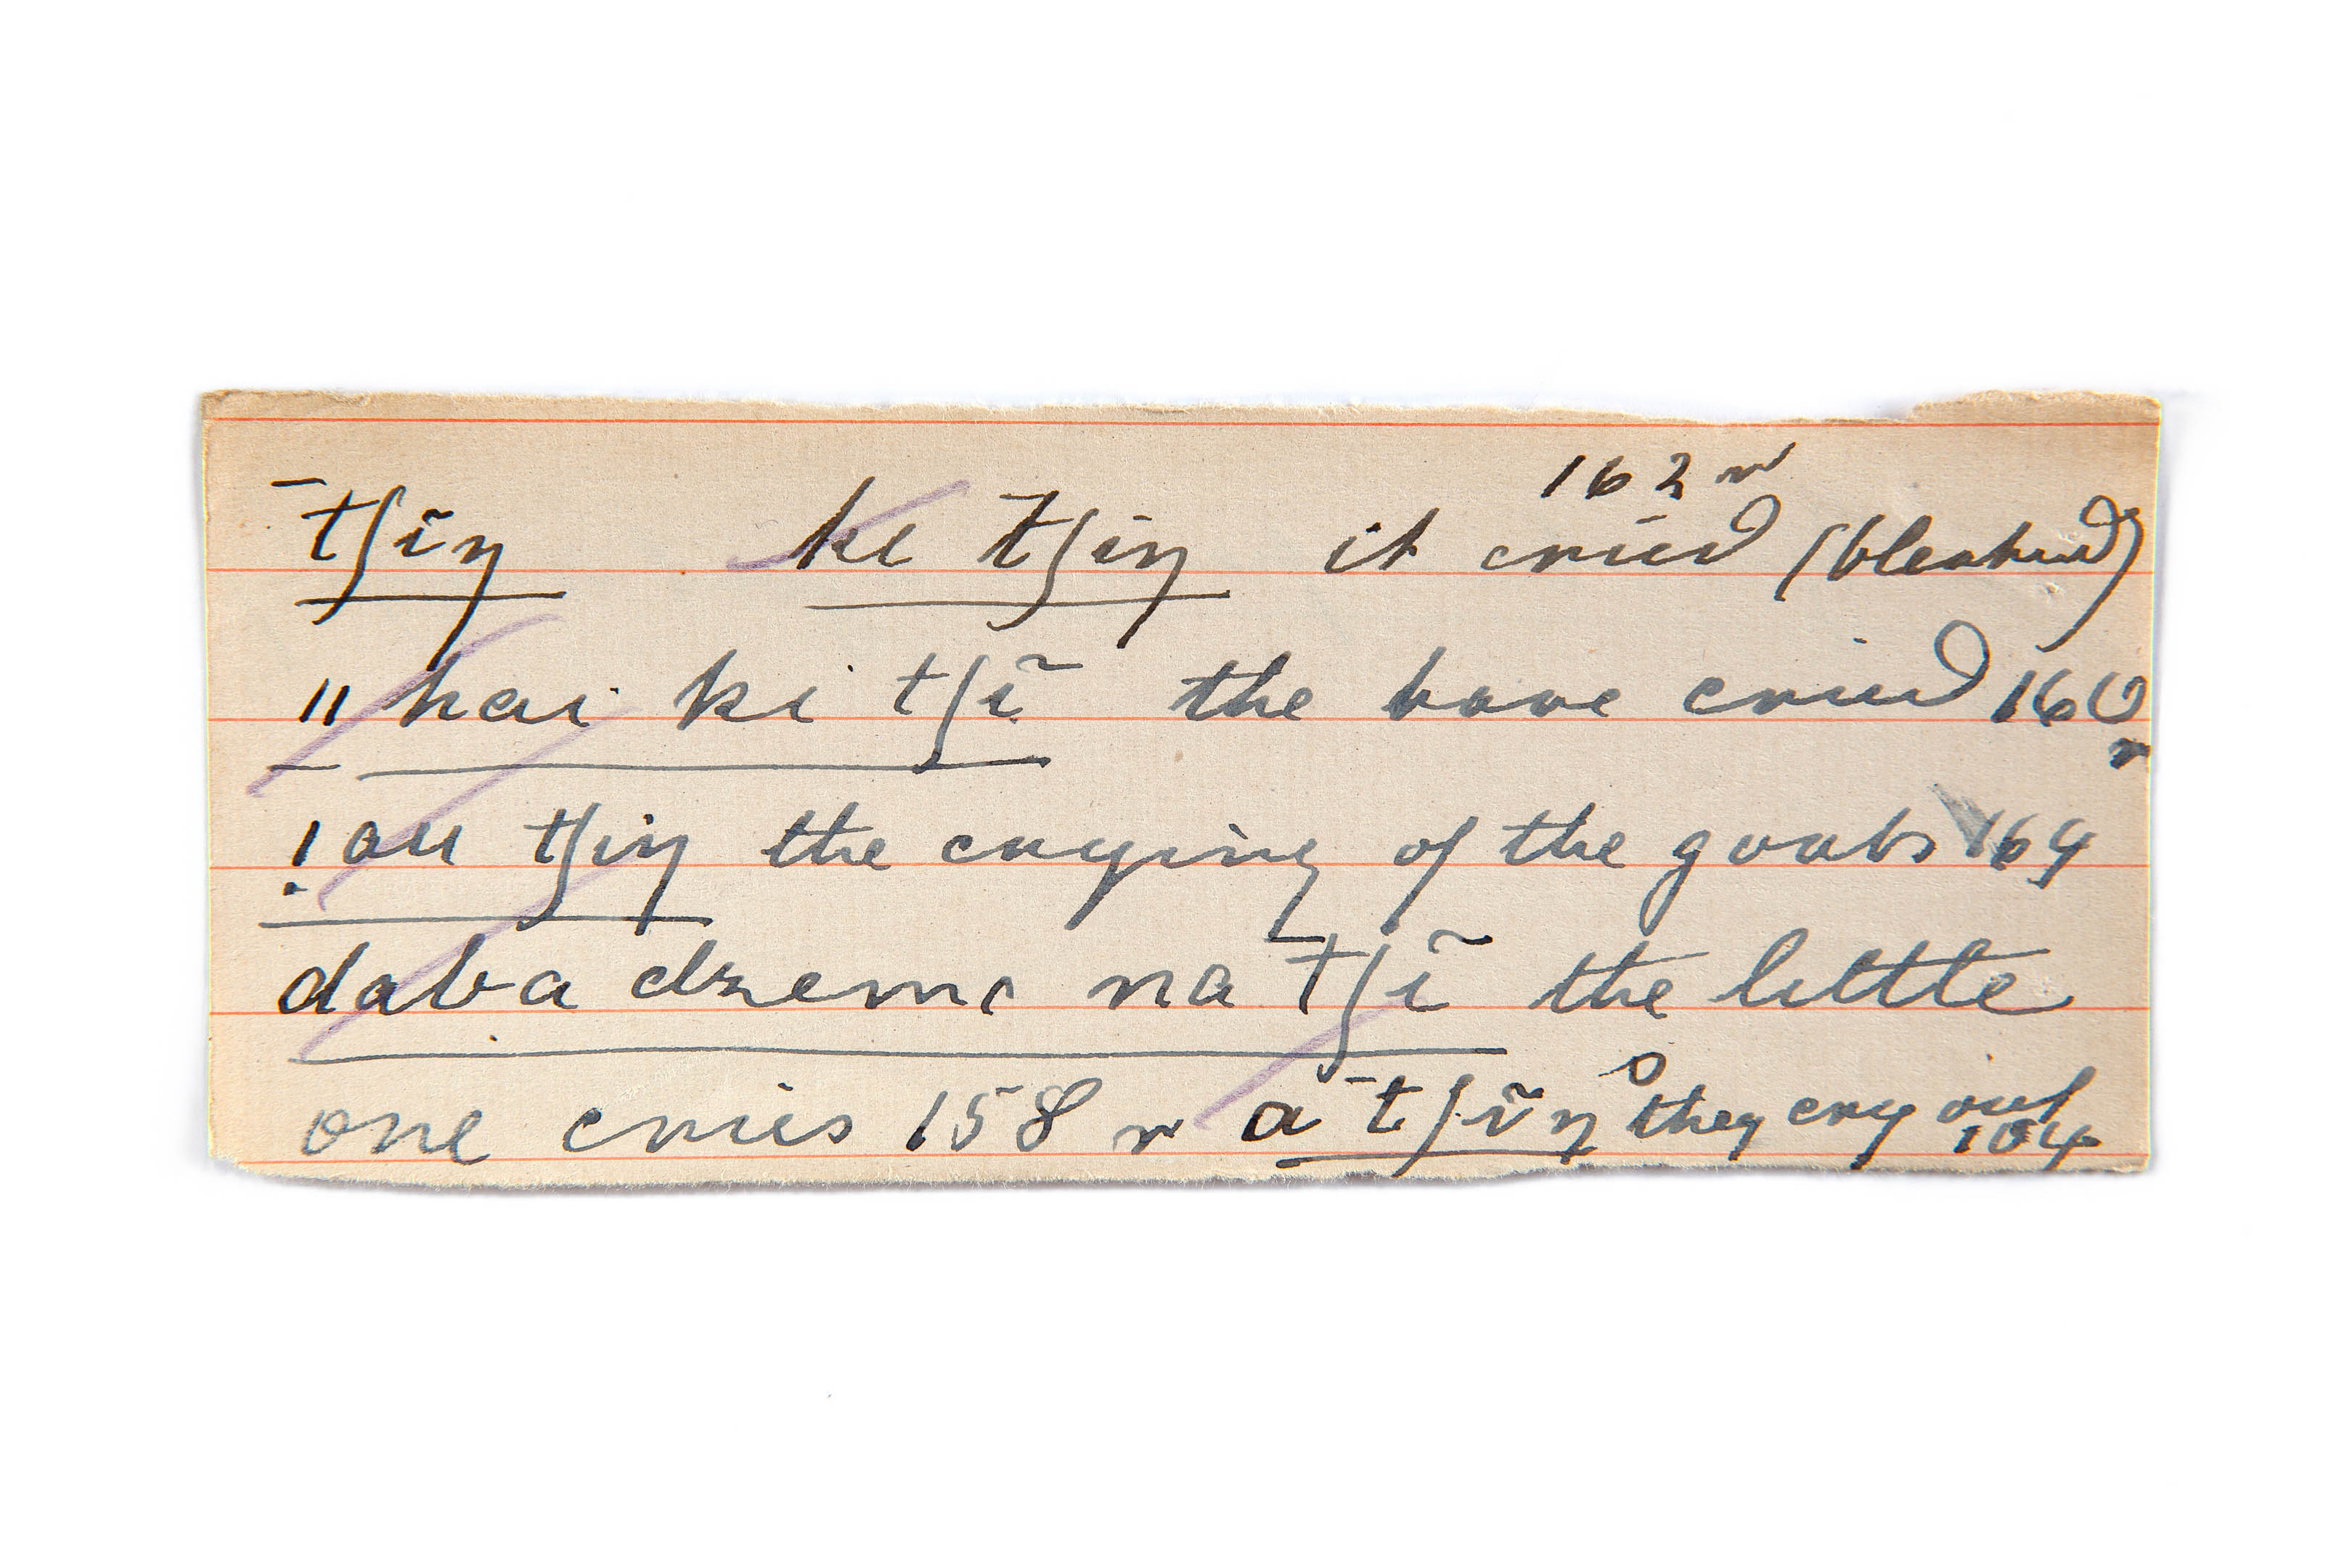 162 r
¯tʃĩŋ ki t̄ʃiŋ it cried (bleated)
ǁhai ki tʃĩ the bore cried 160 r
!au tʃiŋ the crying of the goats 164
daba dzeme na ¯tʃĩ the little
one cries 158 r a ¯tʃĩŋ they cry out 104